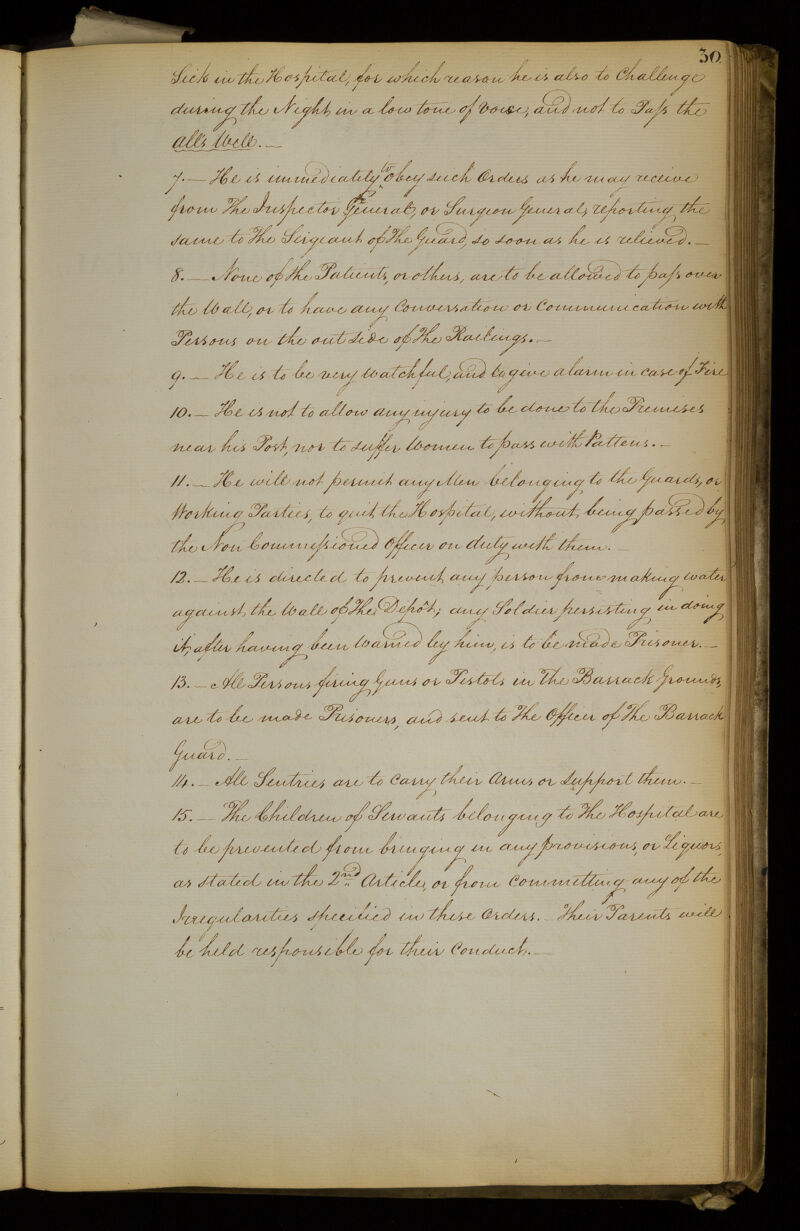 30
Sick in the Hospital, for which reason he is also to Challenge
during the Night in a low tone of Voice, and not to Pass the
all's Well.—
7.— He is immediately to obey such Orders as he may receive
from The Inspector General, or Surgeon General, reporting the
same to The Serjeant of The Guard, so soon as he is relieved.—
8.— None of the Patients, or others, are to be allowed to pass over
the Wall, or to have any Conversation or Communication with
Persons on the outside of The Railings.—
9.— He is to be very watchful, and to give alarm in case of Fire
10.— He is not to allow any injury to be done to the Premises
near his Post, nor to suffer Women to pass with Pattens.—
11.— He will not permit any Men belonging to the Guards, or
Working Parties, to quit the Hospital, without being passed by
the Non Commissioned Officer on duty with them.—
12.— He is directed to prevent any person from making water
against the Wall of The Depôt; any Soldier persisting in doing
it, after having been warned by him, is to be made Prisoner.—
13.— All Persons firing Guns or Pistols in The Barrack Grounds,
are to be made Prisoners, and sent to The Officer of The Barrack
Guard.—
14.— All Sentries are to Carry their Arms or Support them.—
15.— The Children of Servants belonging to The Hospital are
to be prevented from bringing in any provisions, or Liquors,
as stated in the 2nd Article, or from Committing any of the
Irregularities specified in these Orders. Their Parents will
be held responsible for their Conduct.—